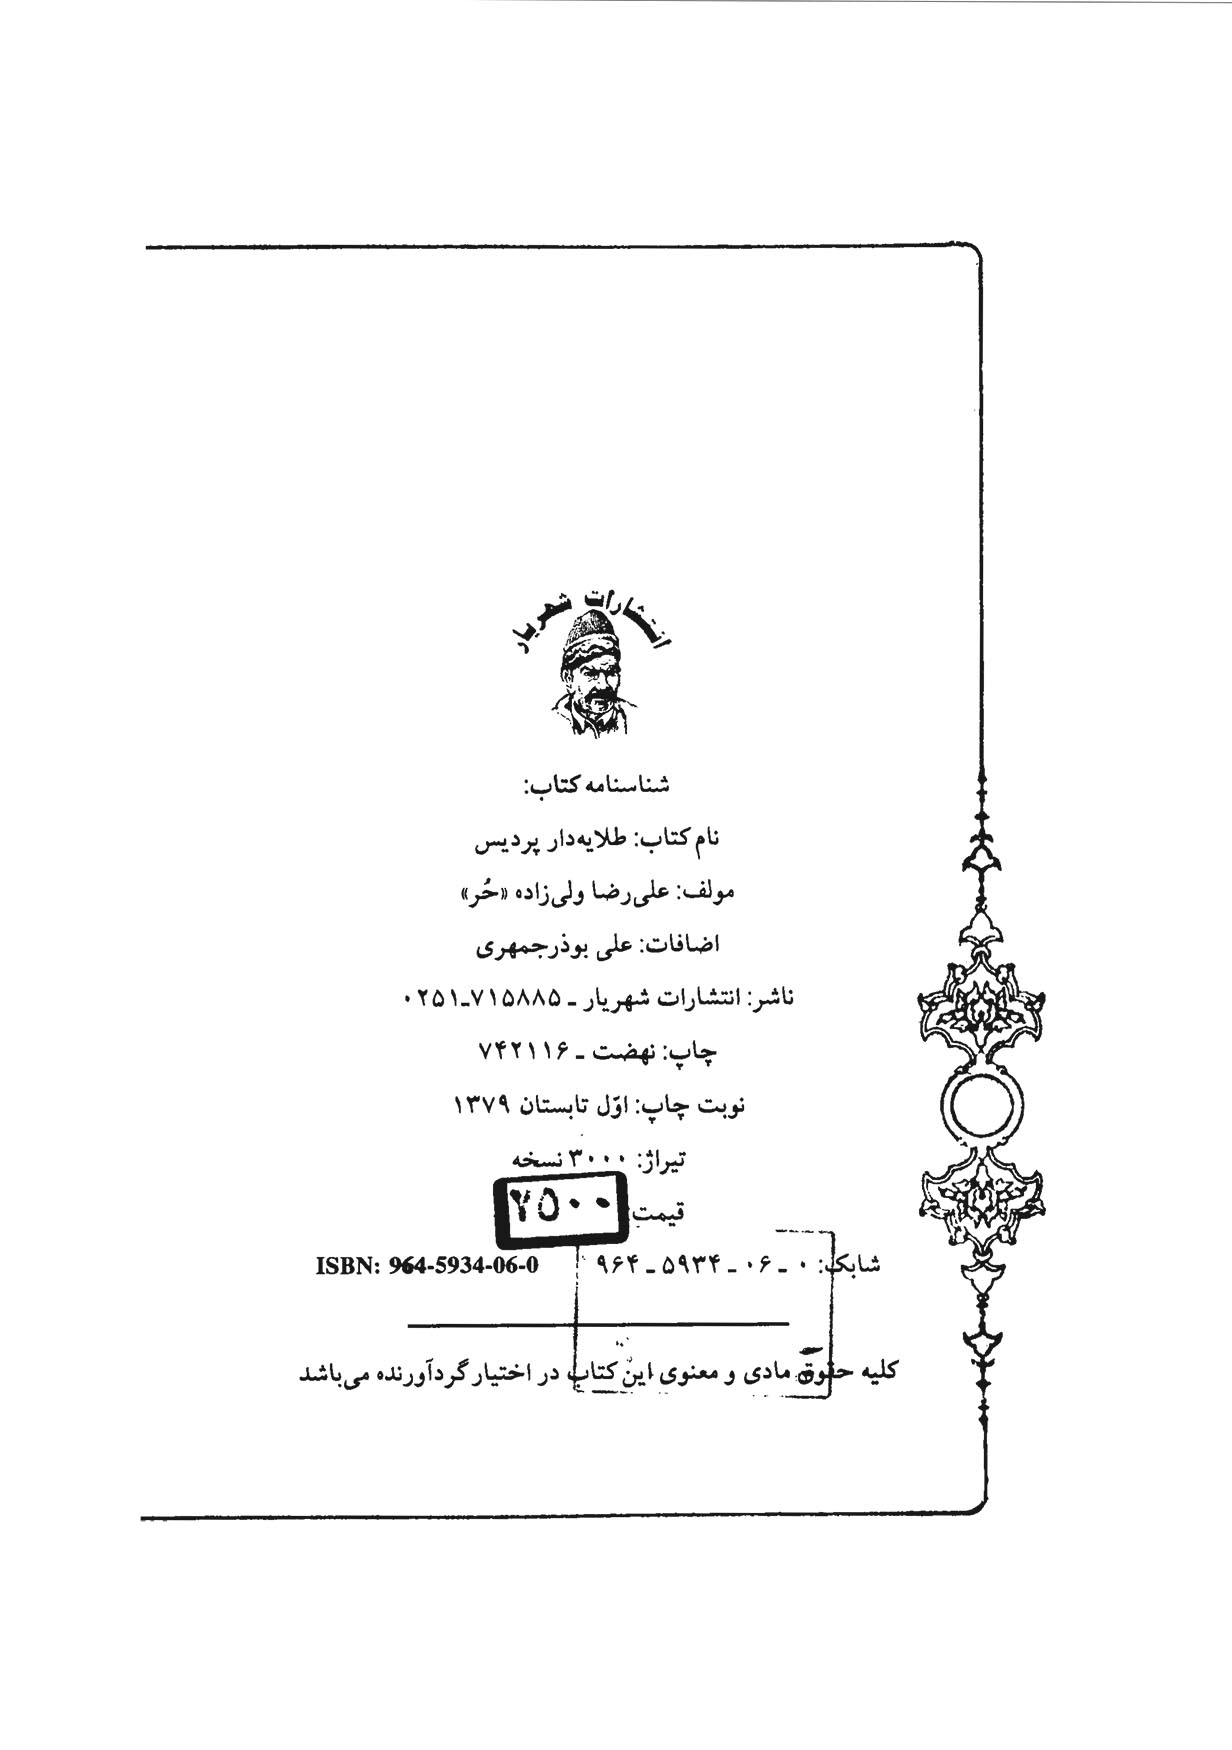 انتشارات شهریار
شناسنامه کتاب:
نام کتاب: طلایه‌دار پردیس
مولف: علی‌رضا ولی‌زاده «حُر»
اضافات: علی بوذرجمهری
ناشر: انتشارات شهریار ـ ۷۱۵۸۸۵ـ۰۲۵۱
چاپ: نهضت ـ ۷۴۲۱۱۶
نوبت چاپ: اوّل تابستان ۱۳۷۹
تیراژ: ۳۰۰۰ نسخه
قیمت ۷۵۰۰
شابک: ۰ ـ ۰۶ ـ ۵۹۳۴ ـ ۹۶۴ ISBN: 964-5934-06-0
کلیه حقوق مادی و معنوی این کتاب در اختیار گردآورنده می‌باشد